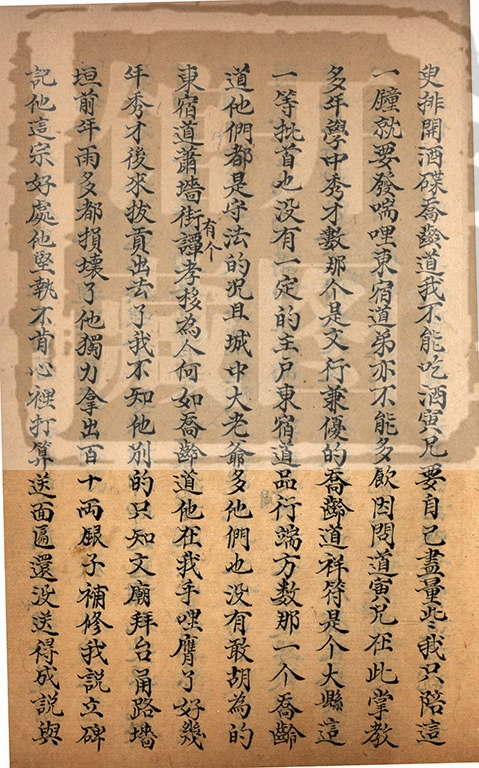 叟排開酒碟喬齡道我不能吃酒寅兄要自己盡量些我只陪這
一鍾就要發喘哩東宿道弟亦不能多飲因問道寅兄在此掌教
多年學中秀才數那个是文行兼優的喬齡道祥符是个大縣這
一等批首也没有一定的主户東宿道品行端方數那一个喬齡
道他們都是守法的况且城中大老爺多他們也没有敢胡為的
東宿道蕭墻街有个譚孝移為人何如喬齡道他在我手哩膺了好幾
年秀才後來拔貢出去了我不知他別的只知文廟拜台甬路墻
垣前年雨多都損壞了他獨力拿出百十両銀子補修我説立碑
記他這宗好處他堅執不肯心裡打算送面匾還没送得成説與